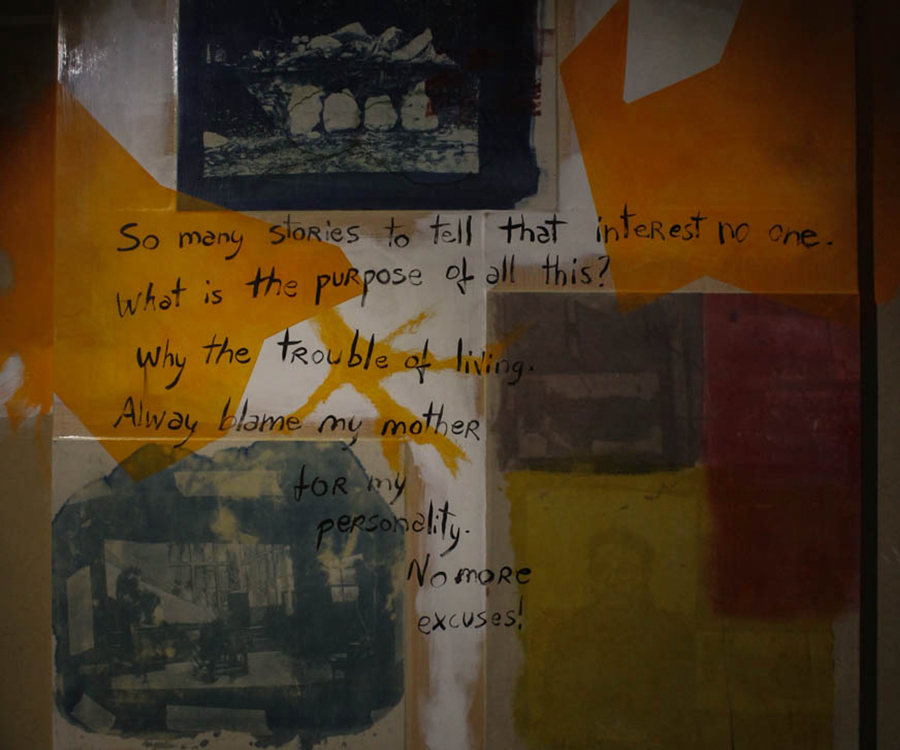 So many stories to tell that interest no one.
What is the purpose of all this?
Why the trouble of living.
Alway blame my mother
for my
personality.
No more
excuses!